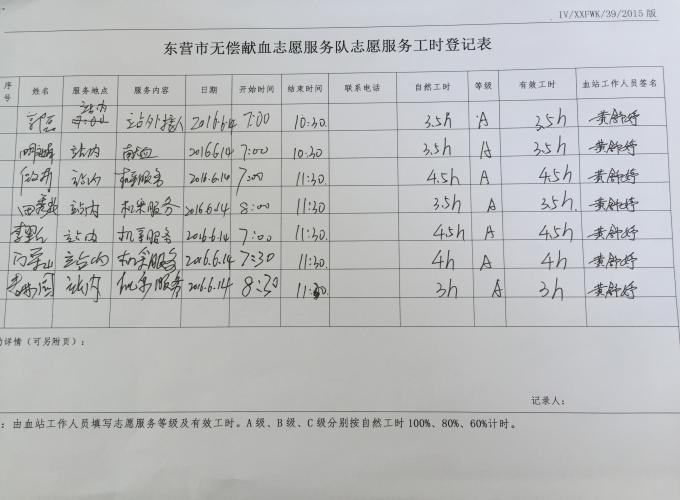 IV/XXFWK/39/2015 版
东营市无偿献血志愿服务队志愿服务工时登记表
序号 姓名 服务地点 服务内容 日期 开始时间 结束时间 联系电话 自然工时 等级 有效工时 血站工作人员签名
站内 7:00 站外接人 2016.6.14 7:00 10:30 3.5h A 3.5h 黄舒婷
站内 献血 2016.6.14 7:00 10:30 3.5h A 3.5h 黄舒婷
站内 机采服务 2016.6.14 7:00 11:30 4.5h A 4.5h 黄舒婷
站内 机采服务 2016.6.14 8:00 11:30 3.5h A 3.5h. 黄舒婷
站内 机采服务 2016.6.14 7:00 11:30 4.5h A 4.5h 黄舒婷
站内 机采服务 2016.6.14 7:30 11:30 4h A 4h 黄舒婷
站内 机采服务 2016.6.14 8:30 11:30 3h A 3h 黄舒婷
动详情（可另附页）：
记录人：
：由血站工作人员填写志愿服务等级及有效工时。A 级、B 级、C 级分别按自然工时 100%、80%、60%计时。